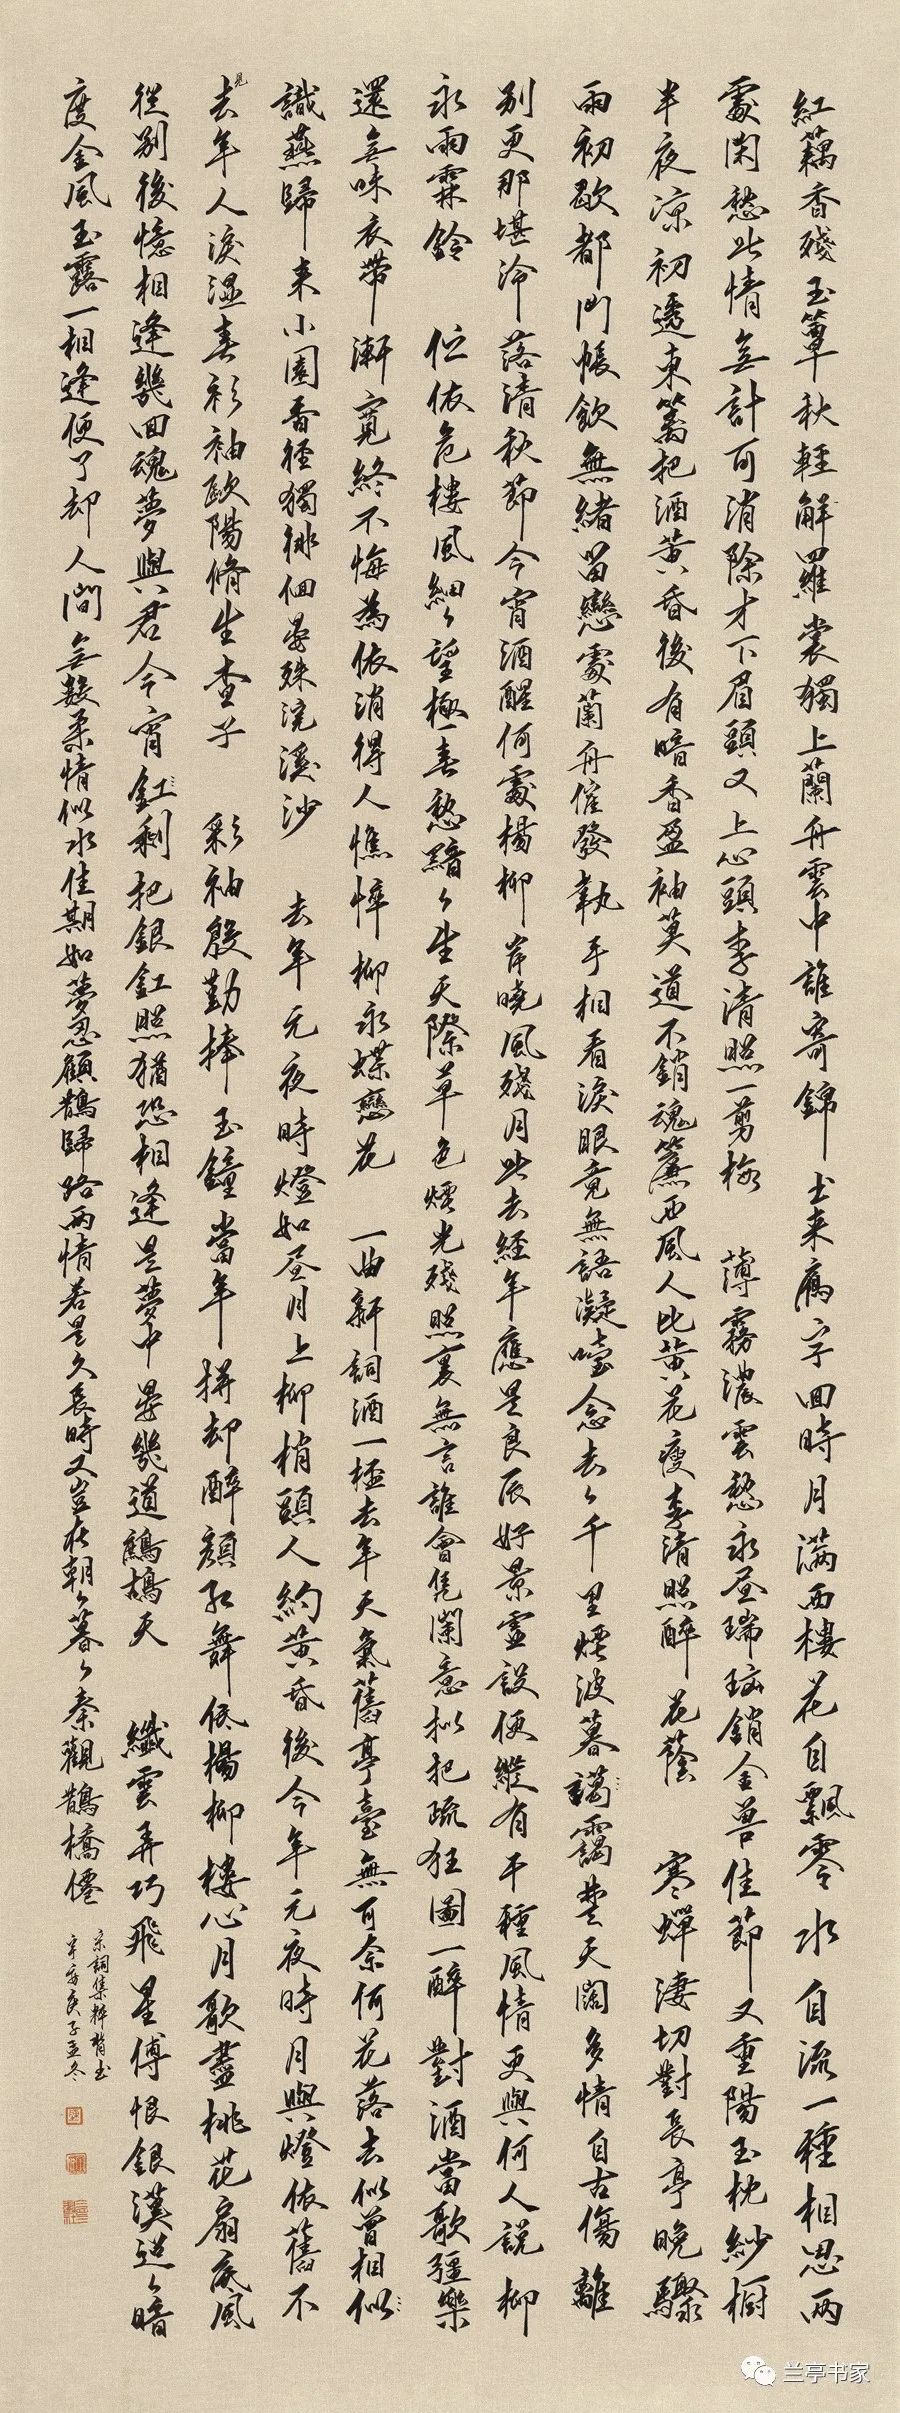 紅藕香殘玉簟秋輕解羅裳獨上蘭舟雲中誰寄錦书来鴈字回時月滿西樓花自飄零水自流一種相思兩
處閑愁此情無計可消除才下眉頭又上心頭李清照一剪梅 薄霧濃雲愁永昼瑞腦銷金兽佳節又重陽玉枕紗橱
半夜凉初透東篱把酒黄昏後有暗香盈袖莫道不銷魂簾西風人比黄花瘦李清照醉花蔭 寒蟬淒切對長亭晚驟
雨初歇都門帳飲無緒留戀處蘭舟催發執手相看淚眼竟無語凝噎念去々千里煙波暮譪靄楚天闊多情自古傷離
别更那堪冷落清秋節今宵酒醒何處楊柳岸曉風殘月此去經年應是良辰好景虛設便縱有千種風情更與何人說 柳
永雨霖鈴 伫依危樓風細々望極春愁黯々生天際草色煙光殘照裏無言誰會凭闌意拟把疏狂圖一醉對酒當歌強樂
還無味衣帶漸寬終不悔為依消得人憔悴柳永蝶戀花 一曲新詞酒一杯去年天氣舊亭臺無可奈何花落去似曾相似
識燕歸来小園香徑獨徘徊晏殊浣溪沙 去年元夜時燈如昼月上柳梢頭人約黄昏後今年元夜時月與燈依舊不
見去年人淚湿春衫袖歐陽脩生查子 彩袖殷勤捧玉鐘當年拼却醉顏紅舞低楊柳樓心月歌盡桃花扇底風
從别後憶相逢幾回魂夢與君今宵釭剩把銀釭照猶恐相逢是夢中晏幾道鷓鴣天 纖雲弄巧飛星傳恨銀漢迢々暗
度金風玉露一相逢便了却人間無數柔情似水佳期如夢忍顧鵲歸路兩情若是久長時又豈在朝々暮々秦觀鵲橋僊
宋詞集粹
庚子孟冬
兰亭书家